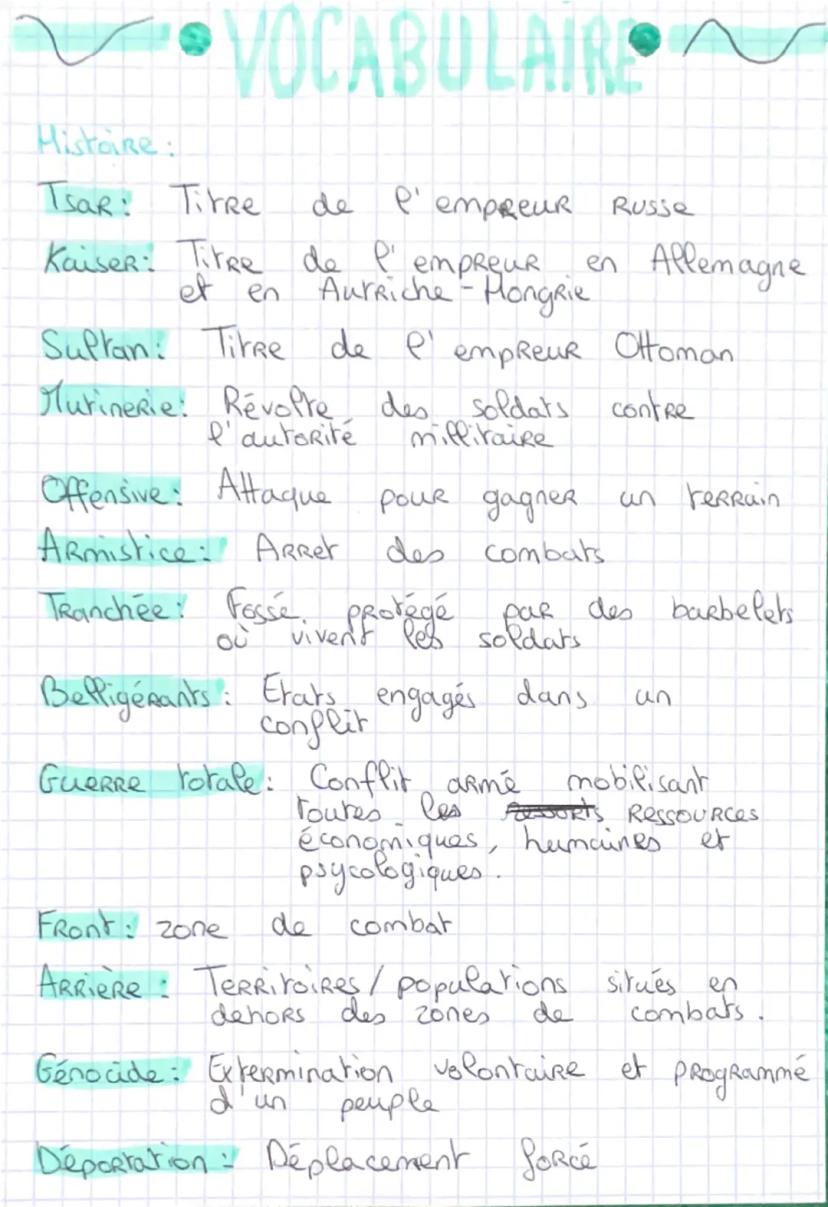 VOCABULAIRE
Histoire :
Tsar : Titre de l'empreur Russe
Kaiser : Titre de l'empreur en Allemagne
et en Autriche-Hongrie
Sultan : Titre de l'empreur Ottoman
Mutinerie : Révolte des soldats contre
l'autorité millitaire
Offensive : Attaque pour gagner un terrain
Armistice : Arret des combats
Tranchée : Fossé protégé par des barbelets
où vivent les soldats
Belligérants : Etats engagés dans un
conflit
Guerre totale : Conflit armé mobilisant
toutes les ressources
économiques, humaines et
psycologiques.
Front : zone de combat
Arrière : Territoires / populations situés en
dehors des zones de combats.
Génocide : Extermination volontaire et programmé
d'un peuple
Déportation : Déplacement forcé